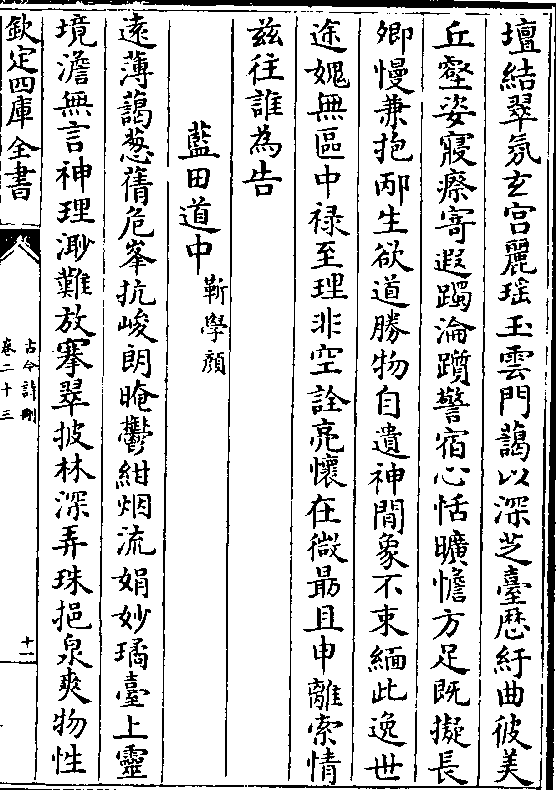 壇結翠氛玄宫麗瑶玉雲門藹以深芝臺歴紆曲彼美
丘壑姿寢瘵寄遐躅淪躓警宿心恬曠憺方足既擬長
卿慢兼抱邴生欲道勝物自遺神閒象不束緬此逸世
途媿無區中禄至理非空詮亮懐在微勗且申離索情
兹往誰為告
藍田道中
靳學顔
逺薄藹葱蒨危峯抗峻朗晻鬱紺烟流娟妙璚臺上靈
境澹無言神理渺難放搴翠披林深弄珠挹泉爽物性
欽定四庫全書
古今詩刪
卷二十三
十一